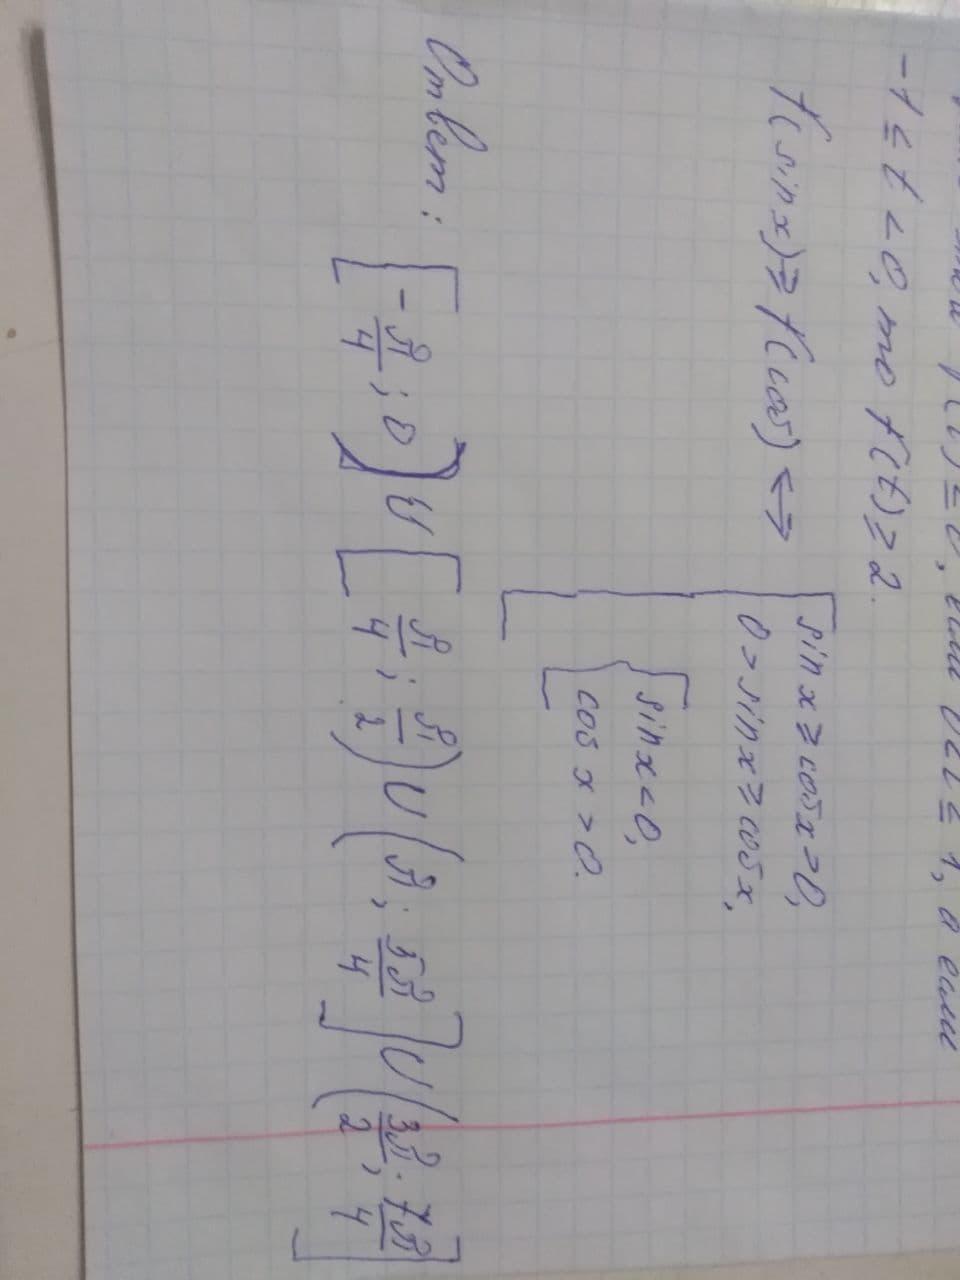 f(t) ≤ 0, если 0 < t ≤ 1, а если
-1 ≤ t < 0, то f(t) ≥ 2.
f(sin x) ≥ f(cos) ⟷
[ sin x ≥ cos x > 0,
0 > sin x ≥ cos x,
{ sin x < 0,
cos x > 0.
Ответ: [-π/4; 0) ∪ [π/4; π/2) ∪ (π; 5π/4] ∪ (3π/2; 7π/4]